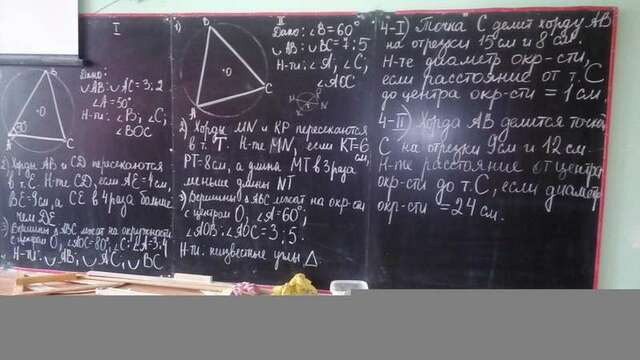 I
B
O
50°
A
C
Дано:
∪AB : ∪AC = 3 : 2
∠A = 50°
Н-ти: ∠B; ∠C;
∠BOC
2) Хорды AB и CD пересекаются
в т. E. Н-те CD, если AE = 4 см,
BE = 9 см, а CE в 4 раза больше,
чем DE
3) Вершины △ABC лежат на окружности
с центром O, ∠AOC = 80°, ∠C : ∠A = 3 : 4
Н-ти: ∪AB; ∪AC; ∪BC
II
1)
B
O
A
C
Дано: ∠B = 60°
∪AB : ∪BC = 7 : 5
Н-ти: ∠A; ∠C;
∠AOC
2) Хорды MN и KP пересекаются
в т. T. Н-те MN, если KT = 6 см,
PT = 8 см, а длина MT в 3 раза
меньше длины NT
3) Вершины △ABC лежат на окр-сти
с центром O, ∠A = 60°,
∠AOB : ∠AOC = 3 : 5.
Н-ти: неизвестные углы △.
4-I) Точка C делит хорду AB
на отрезки 15 см и 8 см.
Н-те диаметр окр-сти,
если расстояние от т. C
до центра окр-сти = 1 см.
4-II) Хорда AB делится точкой
C на отрезки 9 см и 12 см.
Н-те расстояние от центра
окр-сти до т. C, если диаметр
окр-сти = 24 см.